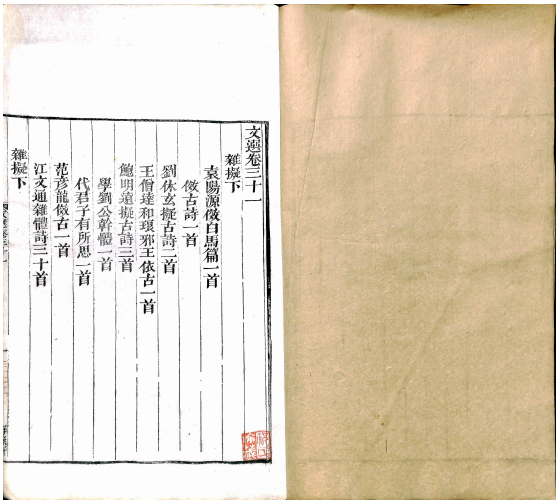 文選卷三十一
雜擬下
袁陽源倣白馬篇一首
倣古詩一首
劉休玄擬古詩二首
王僧達和琅邪王依古一首
鮑明遠擬古詩三首
學劉公幹體一首
代君子有所思一首
范彥龍倣古一首
江文通雜體詩三十首
雜擬下